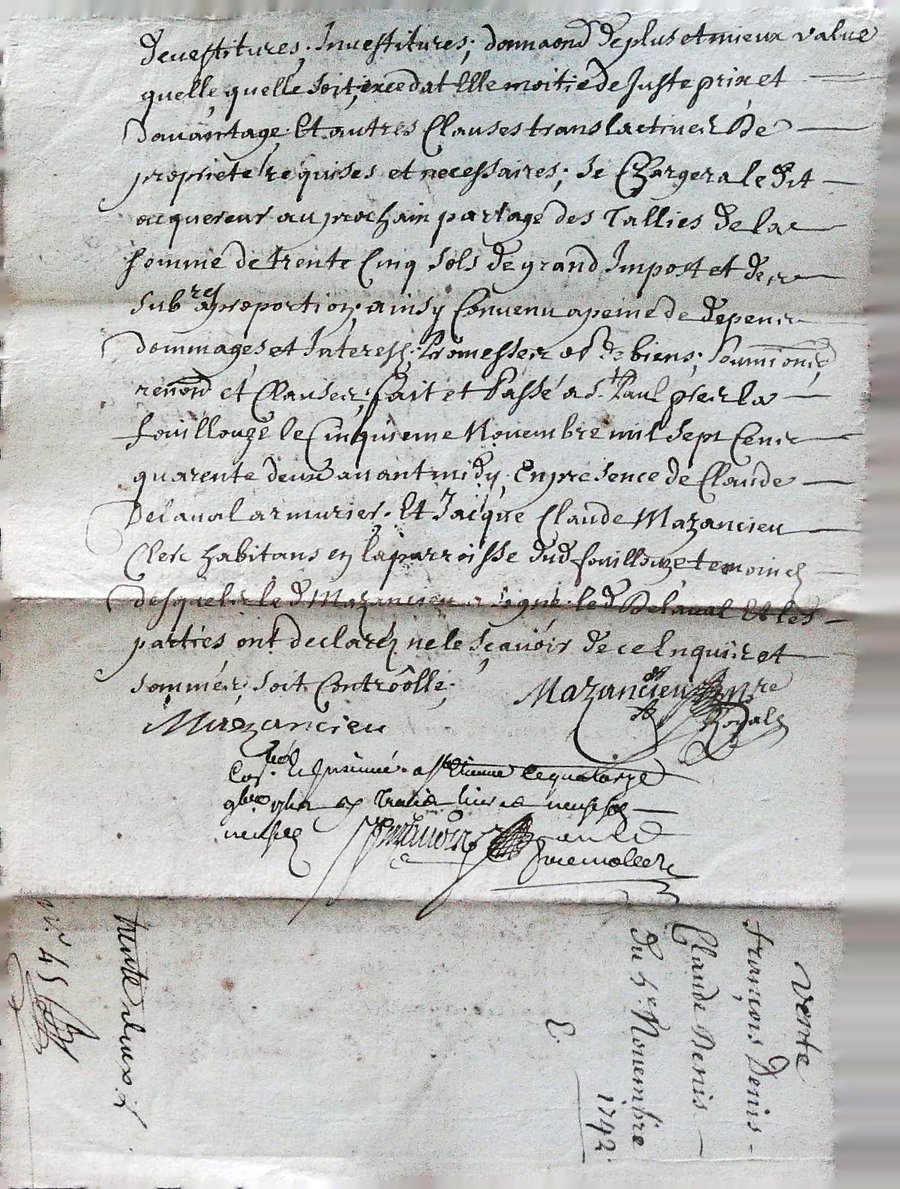 devestitures, Investitures; donnaond de plus et mieux value
quelle, quelle soit, excedat Elle moitie de Juste prix et
davantage, Et autres Clauses translactiver De
propriete requises et necessaires; Se Chargera le dit
acquereur au prochain partage des Tallies de la
somme de trente Cinq sols de grand Impost et der
subre aproportion; ainsy Convenu a peine de depenr
dommages et Interess, Promesser de biens; soumionS
renond et Clauser; fait et Passé a St Paul pres la
fouillouze le Cinquieme Novembre mil sept Cenr
quarente deux avant midy, En presence de Claude
Delaval armurier. Et Jacque Claude Mazancieu
Clerc habitans en la parroisse dud fouillouze temoins
desquels le d Mazancieu a signé. le d Delaval Et les
parties ont declaré ne le sçavoir de ce Enquir et
sommér, soit Controollé;
Mazancieu nre
Royale
Mazancieu
a St Etienne le quatorze
gbre
vente
françois Denis -
Claude Denis -
du 5e Novembre
1742
E
trente deux
45